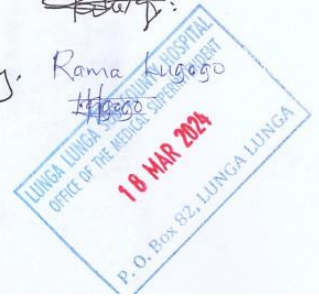 Rama Lugogo
LUNGA LUNGA SUB COUNTY HOSPITAL
OFFICE OF THE MEDICAL SUPERINTENDENT
18 MAR 2024
P. O. Box 82, LUNGA LUNGA